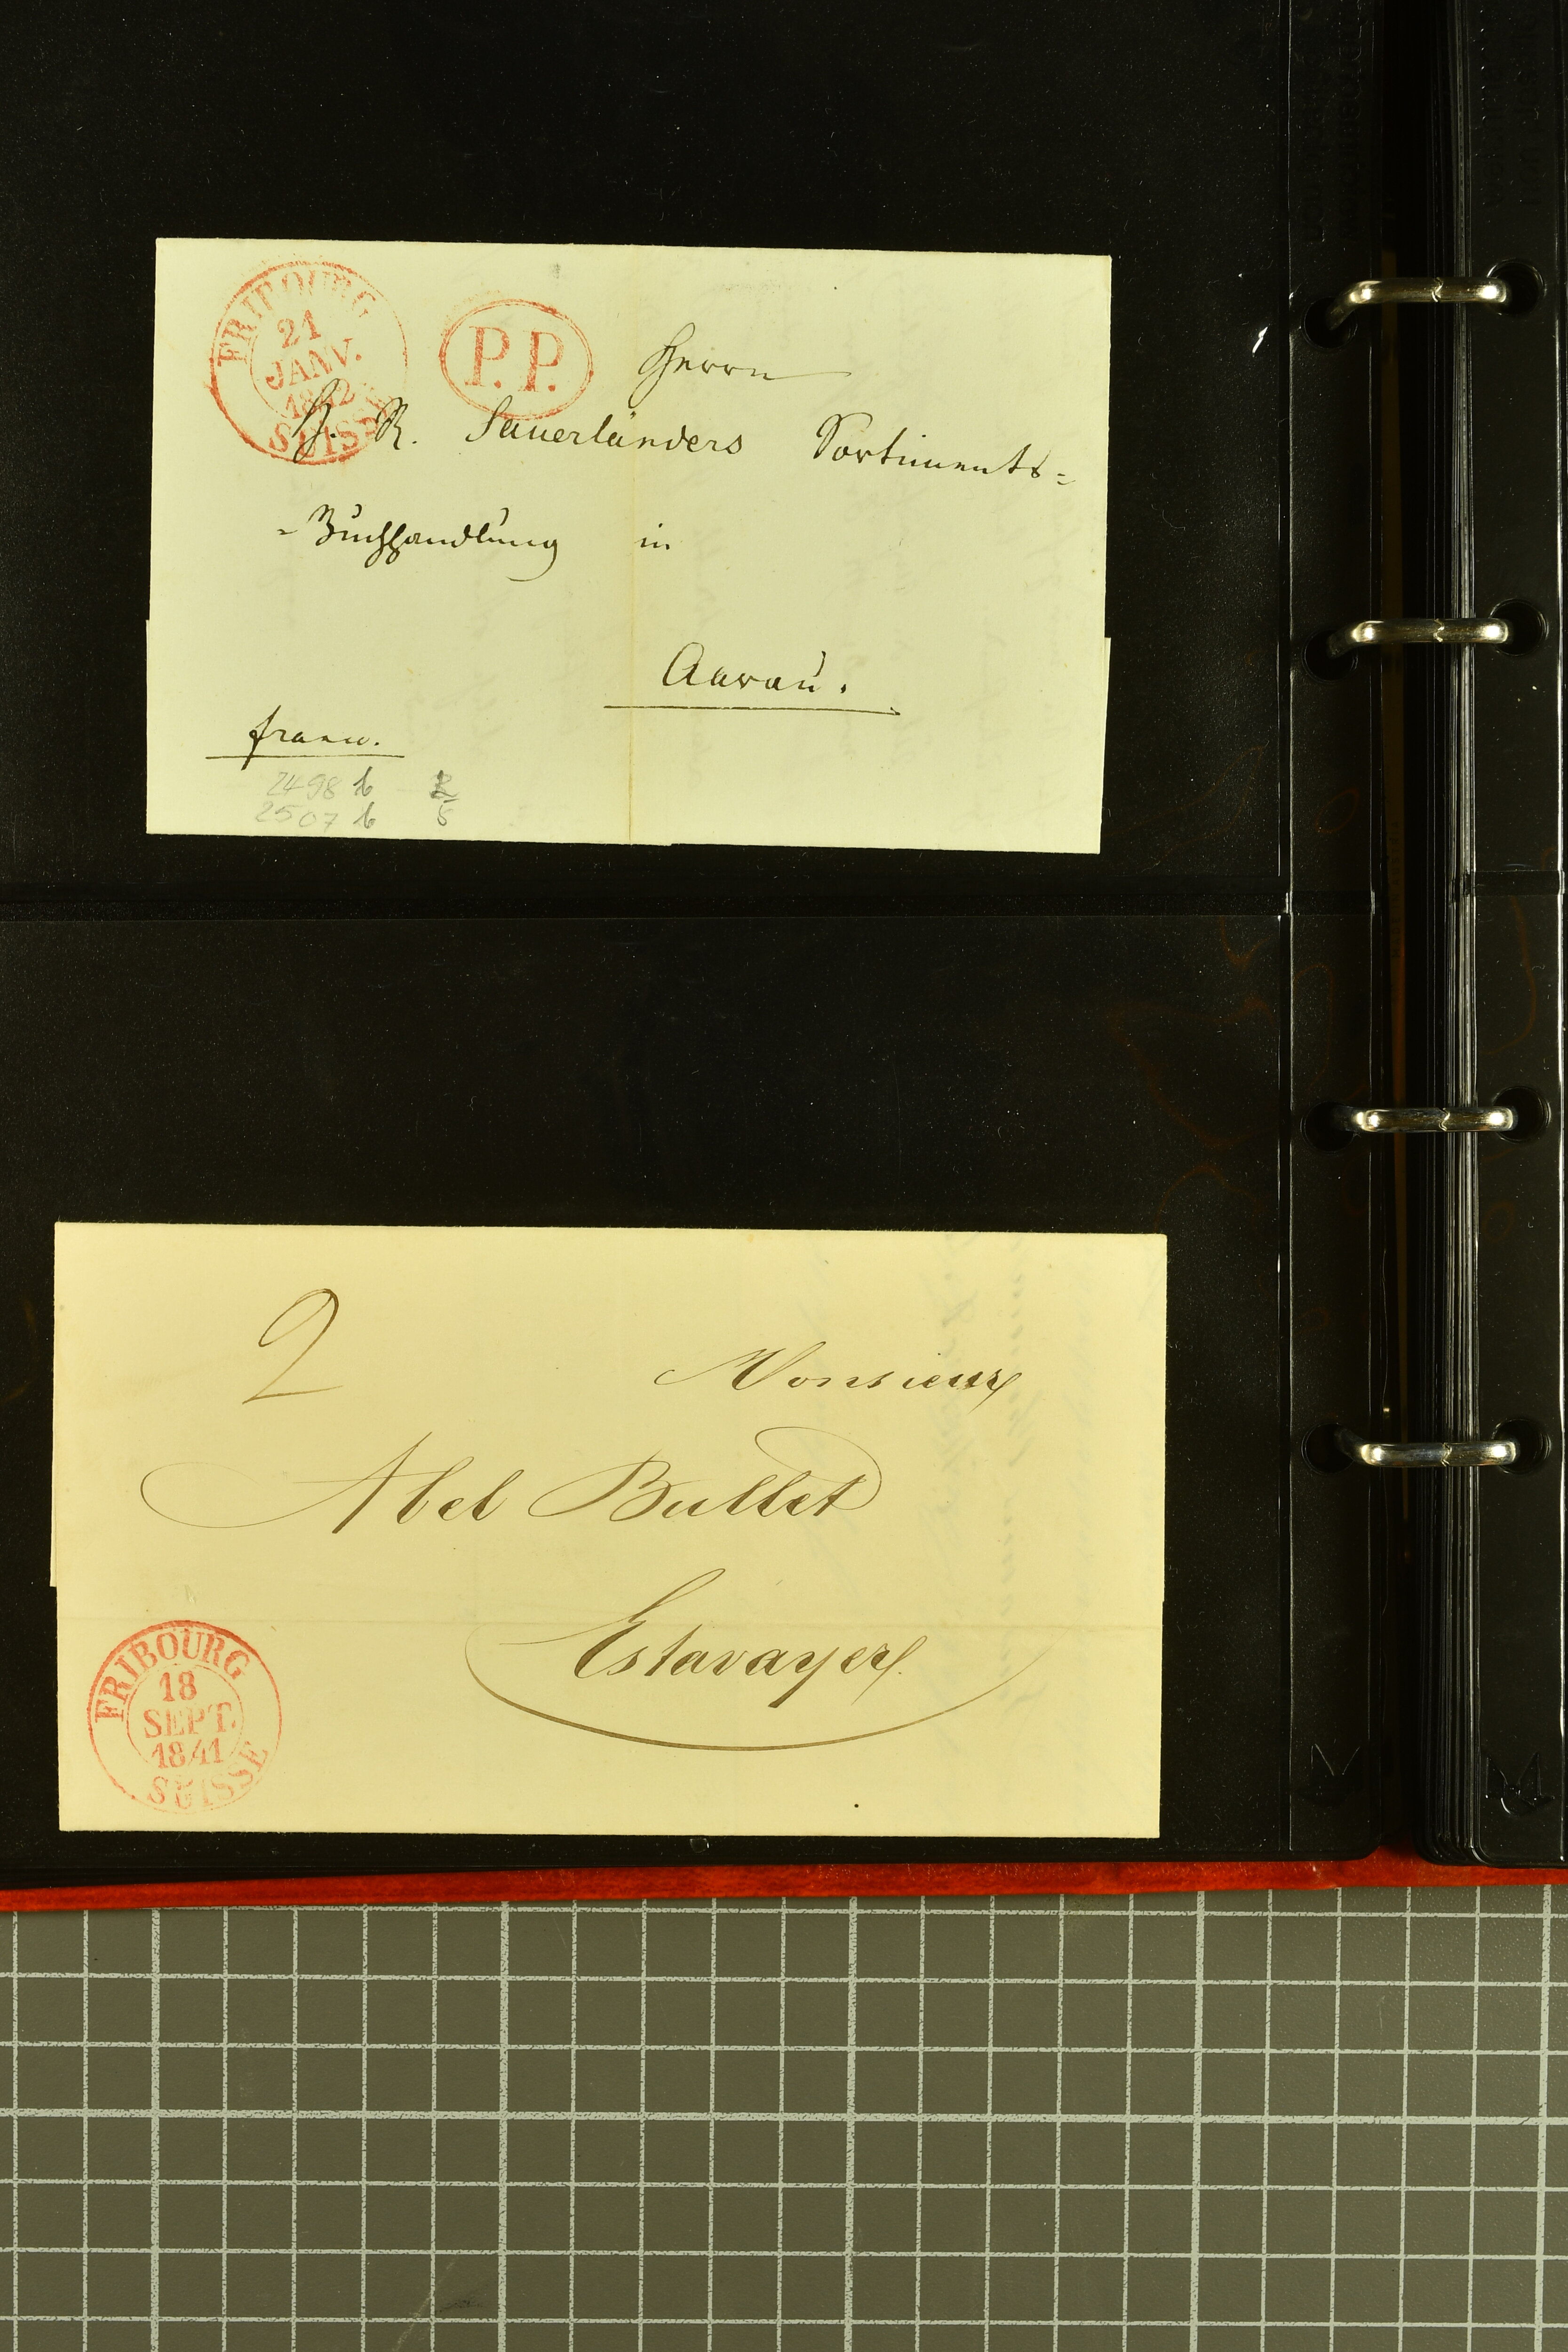 FRIBOURG
21
JANV.
1842
SUISSE
P.P.
Herrn
H. R. Sauerländers Sortiments=
=Buchhandlung in
Aarau.
franco.
2498 b
2507 b 5
2
Monsieur
Abel Bullet
Estavayer.
FRIBOURG
18
SEPT.
1841
SUISSE